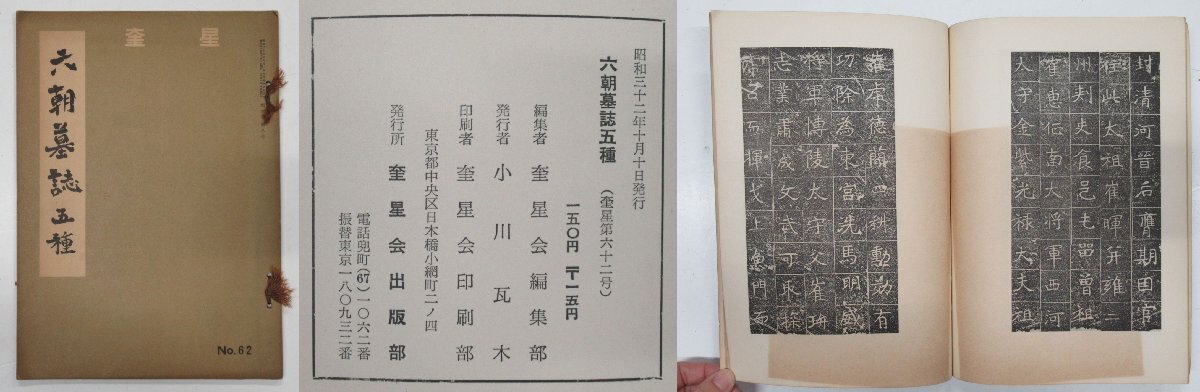 奎星
六朝墓誌五種
No.62
昭和三十二年十月十日発行
六朝墓誌五種（奎星第六十二号）
一五〇円 〒一五円
編集者 奎星会編集部
発行者 小川瓦木
印刷者 奎星会印刷部
東京都中央区日本橋小網町二ノ四
発行所 奎星会出版部
電話兜町(67)一〇六二番
振替東京一八〇九三二番
封清河晉后膺期田
祖崔暉并雍二
州刺史食邑屯留曾祖
崔恵伝南大将軍西河
太守金紫光禄大夫祖
德蘭四
切除為東宮洗馬明威
将軍博陵太守父崔
志業肅成文武可